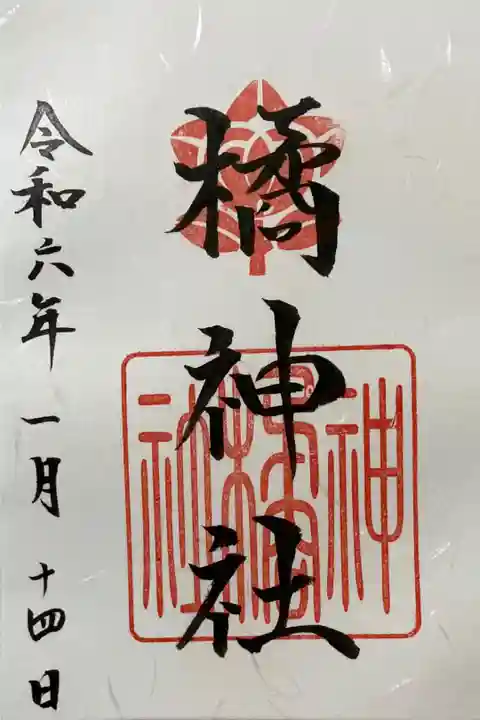 橘神社
令和六年一月十四日
橘神社